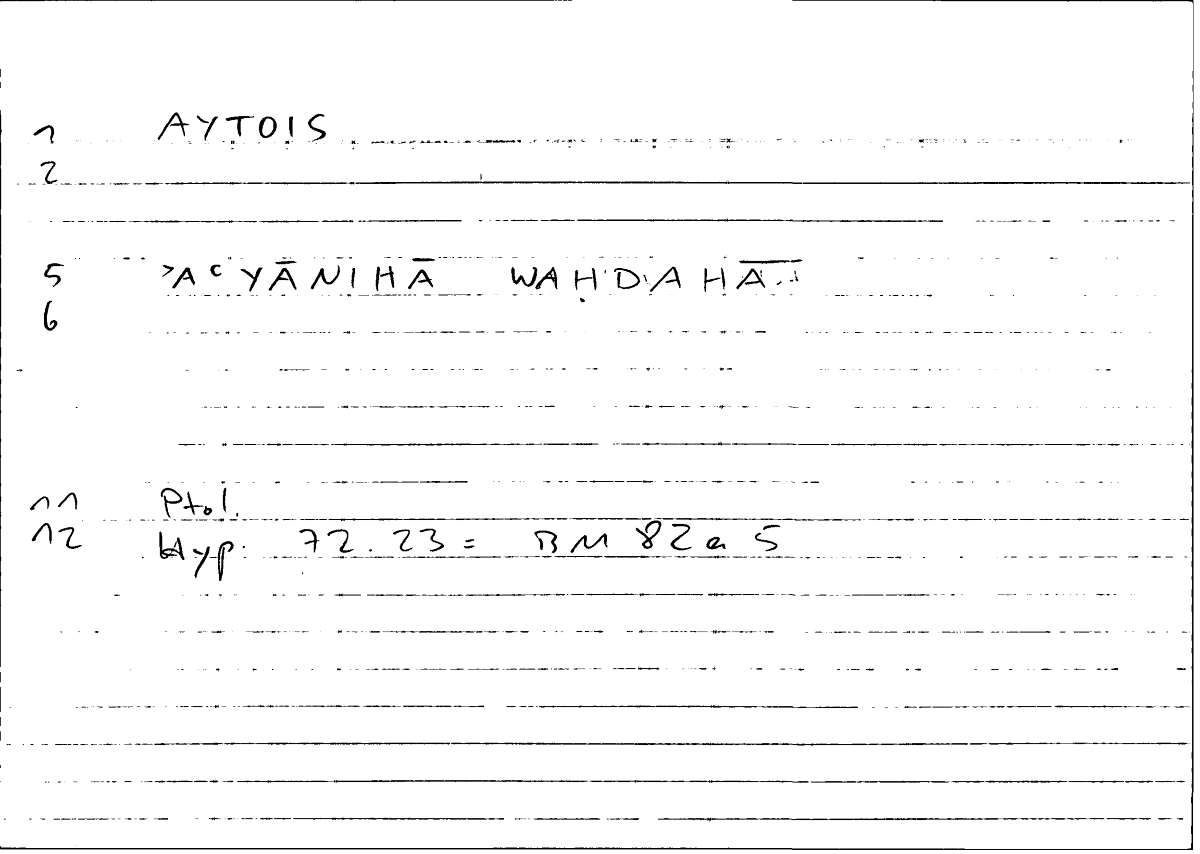 1 AYTOIS
2
5 ʾAʿYĀNIHĀ WAḤDAHĀ
6
11 Ptol.
12 Hyp. 72.23 = BM 82a5